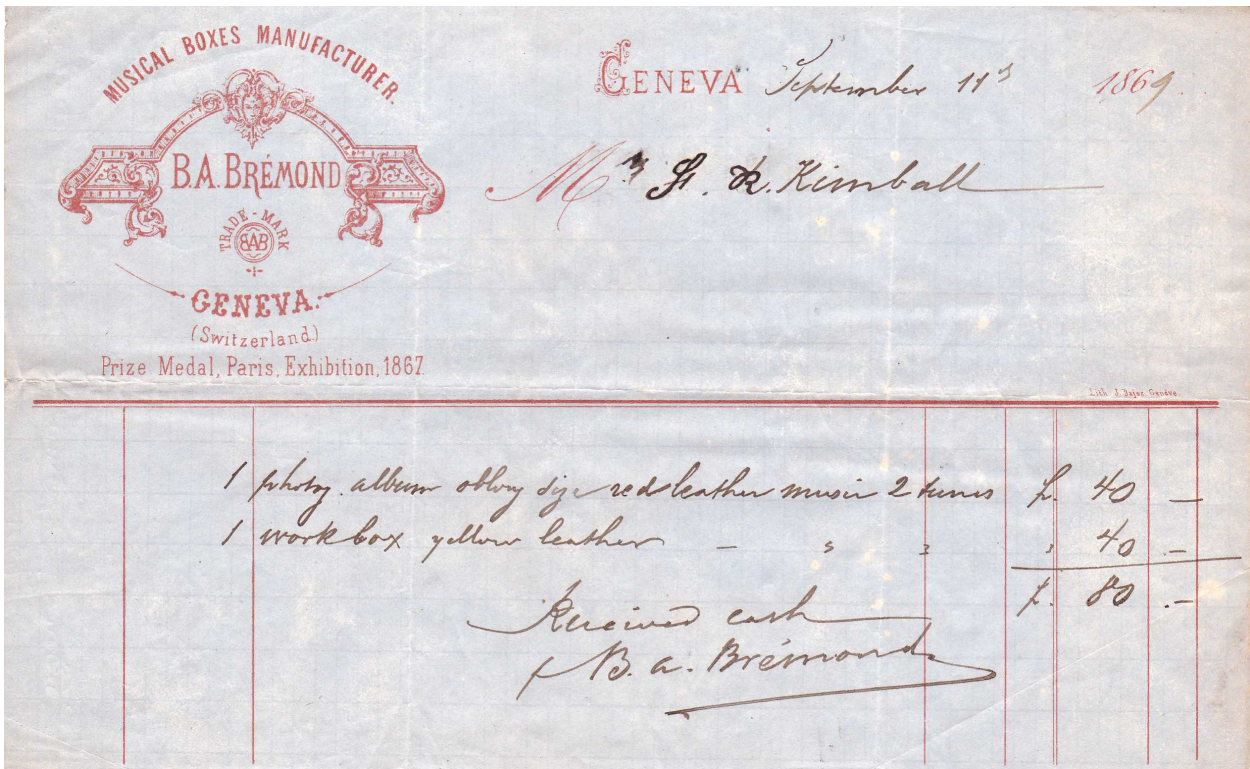 MUSICAL BOXES MANUFACTURER.
B.A. BRÉMOND
TRADE-MARK
BAB
GENEVA.
(Switzerland.)
Prize Medal, Paris, Exhibition, 1867.
GENEVA September 11 1869
M Kimball
Genève.
1 photog. album oblong size red leather music 2 tunes f. 40 —
1 workbox yellow leather — " " " 40 —
f. 80 .—
Received cash
B. A. Brémond